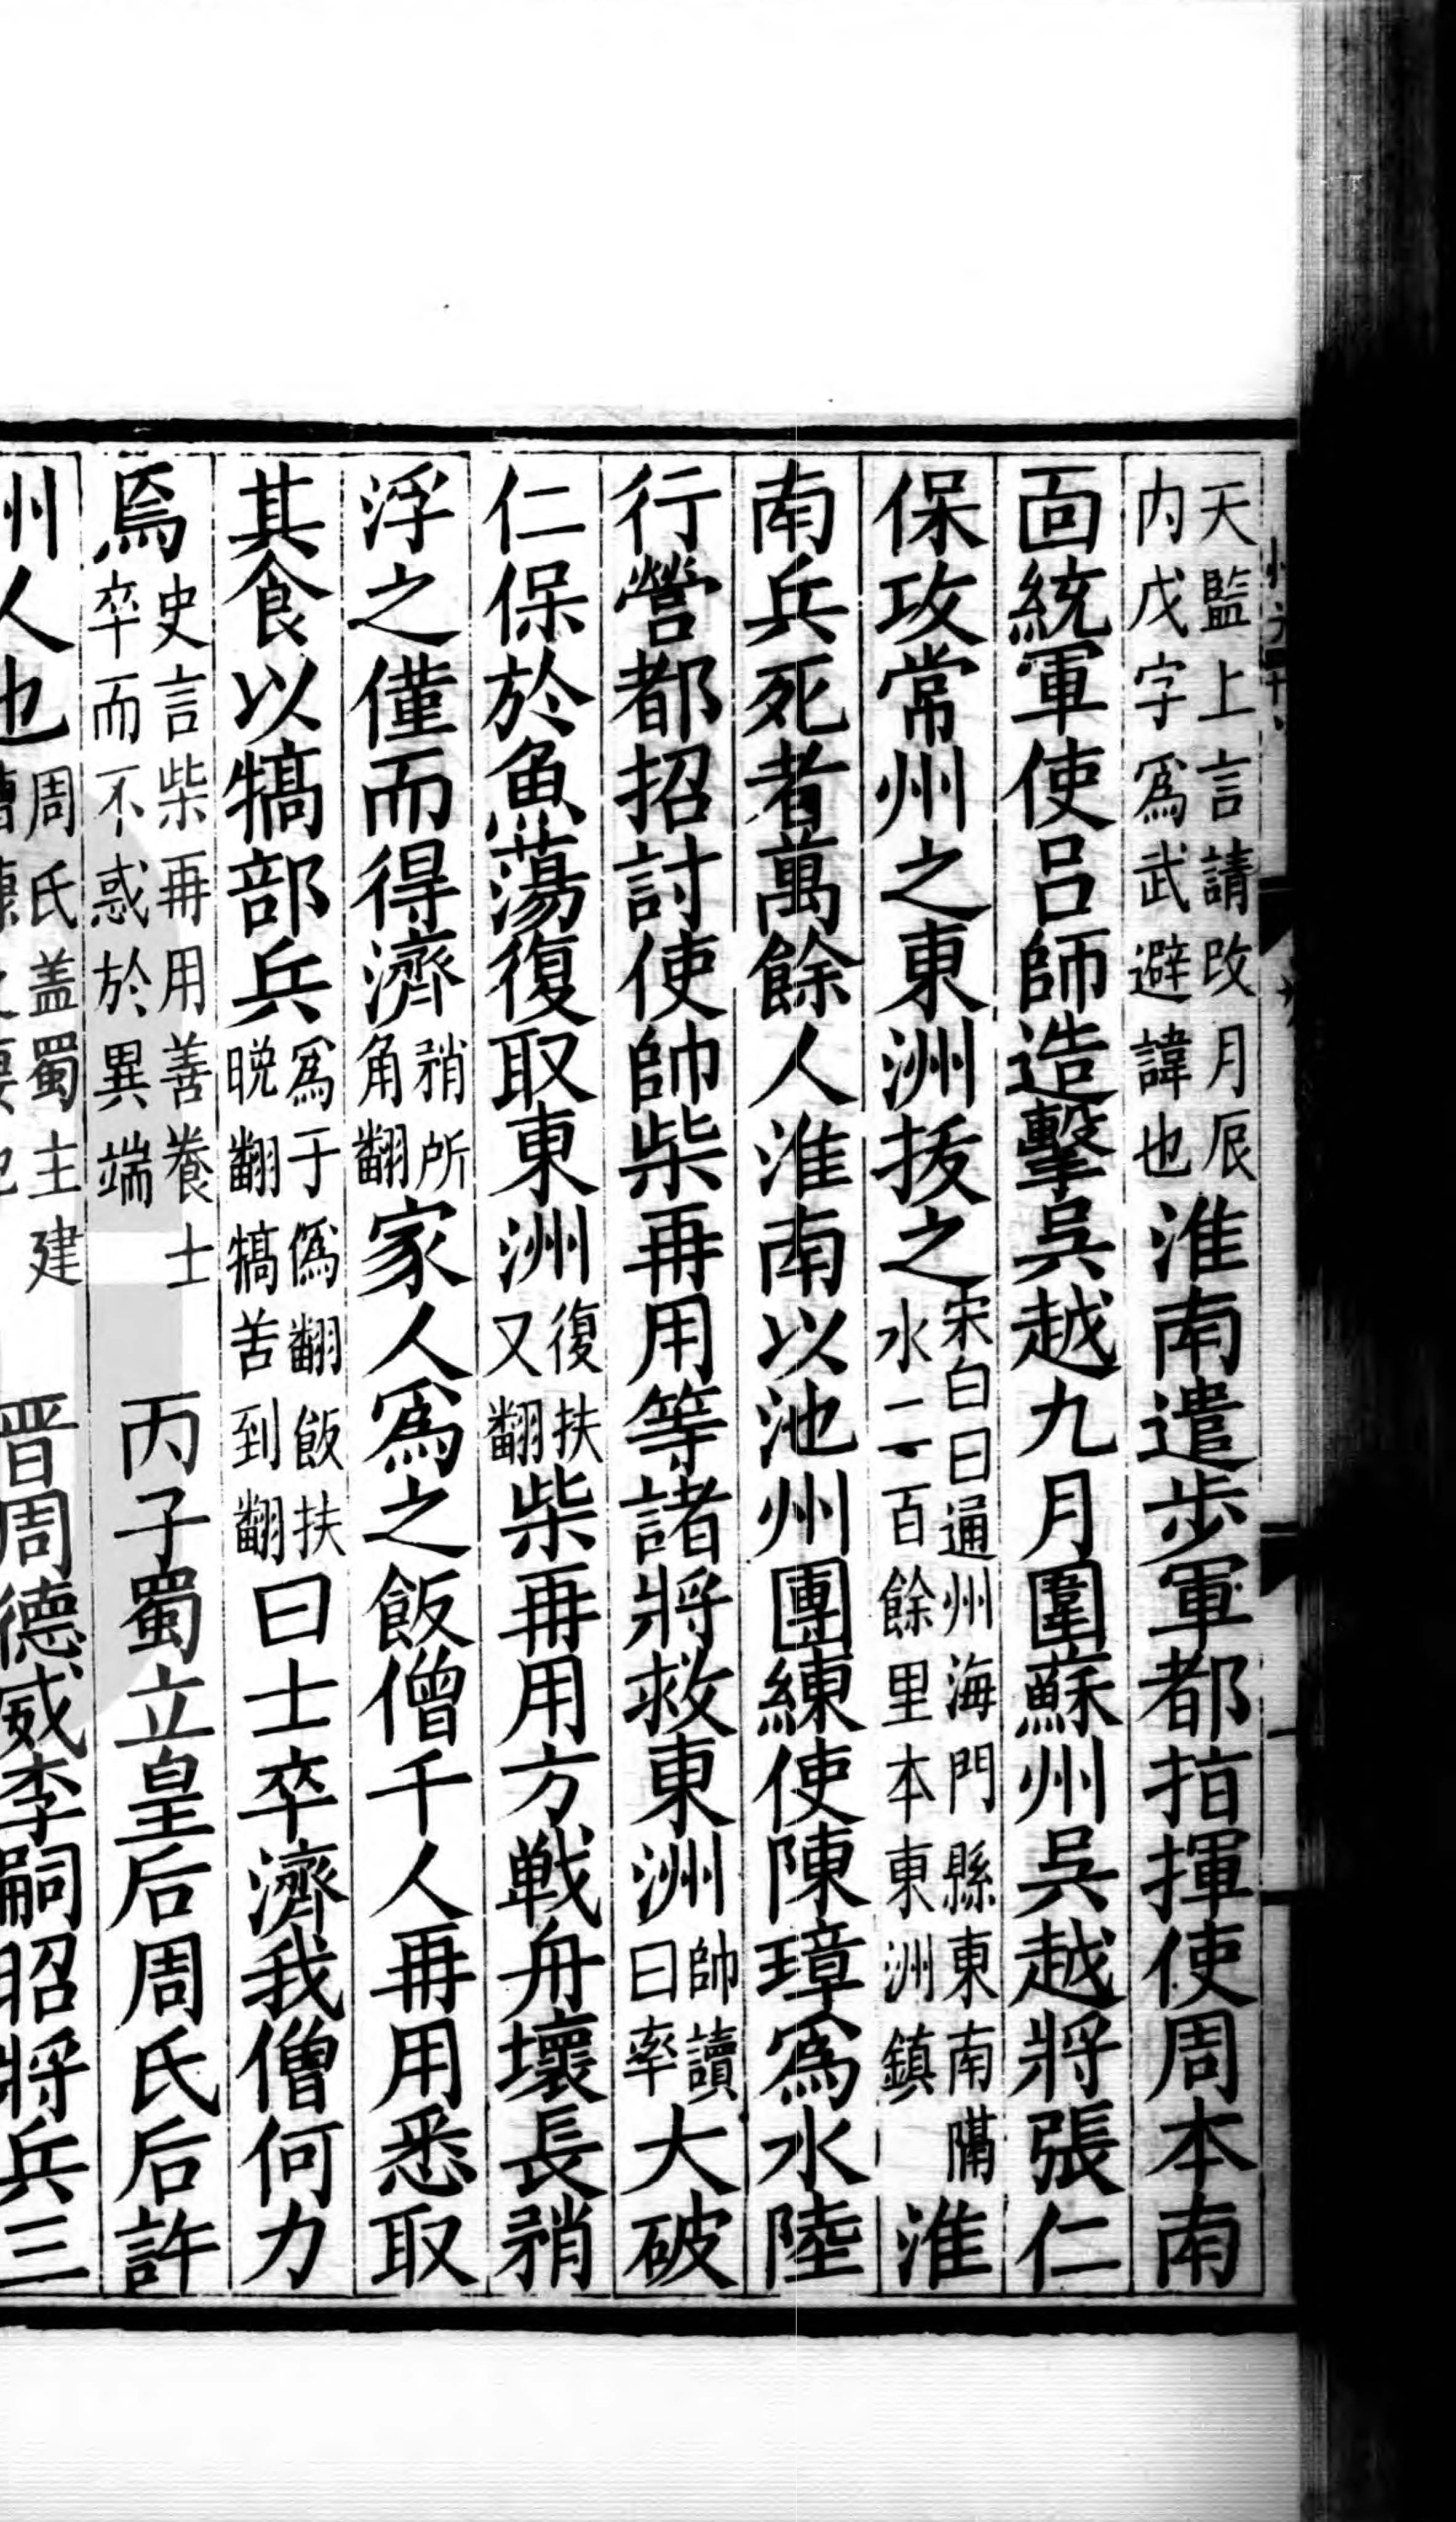 天監上言請改月辰内戊字爲武避諱也淮南遣步軍都指揮使周本南
面統軍使呂師造擊吳越九月圍蘇州吳越將張仁
保攻常州之東洲拔之宋白曰通州海門縣東南隔水二百餘里本東洲鎮淮
南兵死者萬餘人淮南以池州團練使陳璋爲水陸
行營都招討使帥柴再用等諸將救東洲帥讀曰率大破
仁保於魚蕩復取東洲復扶又翻柴再用方戰舟壞長矟
浮之僅而得濟矟所角翻家人爲之飯僧千人再用悉取
其食以犒部兵爲于僞翻飯扶晚翻犒苦到翻曰士卒濟我僧何力
焉史言柴再用善養士卒而不惑於異端丙子蜀立皇后周氏后許
州人也周氏盖蜀主建晋周德威李嗣昭將兵三